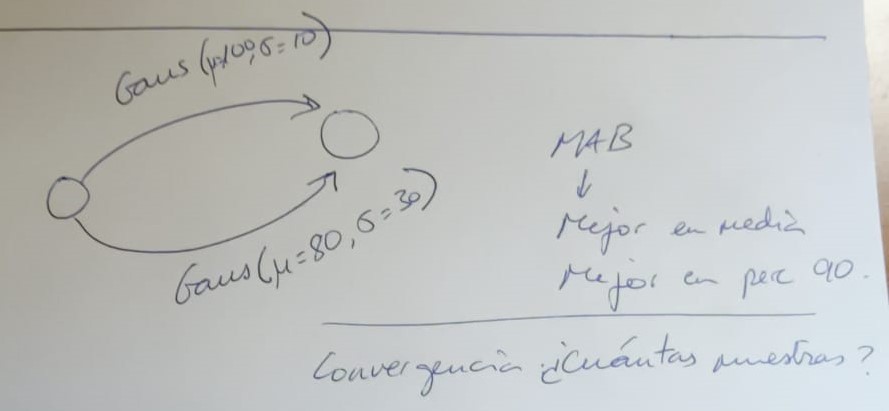 Gaus (μ=100, σ=10)
Gaus (μ=80, σ=30)
MAB
↓
Mejor en media
Mejor en perc 90.
Convergencia ¿Cuántas muestras?